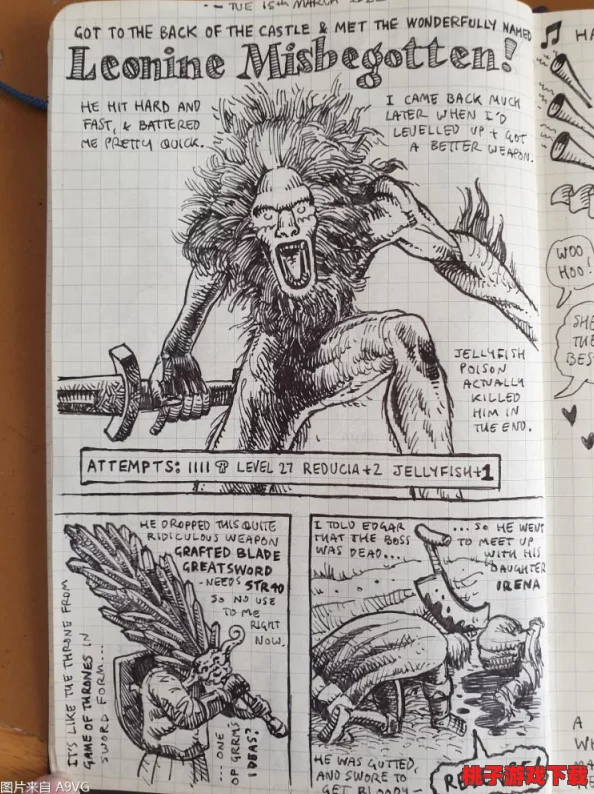 TUE 15TH MARCH
GOT TO THE BACK OF THE CASTLE & MET THE WONDERFULLY NAMED
Leonine Misbegotten!
HE HIT HARD AND
FAST, & BATTERED
ME PRETTY QUICK.
I CAME BACK MUCH
LATER WHEN I'D
LEVELLED UP + GOT
A BETTER WEAPON.
JELLYFISH
POISON
ACTUALLY
KILLED
HIM IN
THE END.
ATTEMPTS: IIII LEVEL 27 REDUCIA+2 JELLYFISH+1
HE DROPPED THIS QUITE
RIDICULOUS WEAPON
GRAFTED BLADE
GREATSWORD
-NEEDS STR40
SO NO USE
TO ME
RIGHT
NOW.
IT'S LIKE THE THRONE FROM
GAME OF THRONES IN
SWORD FORM...
...ONE
OF GRRM'S
IDEAS?
I TOLD EDGAR
THAT THE BOSS
WAS DEAD...
...SO HE WENT
TO MEET UP
WITH HIS
DAUGHTER
IRENA
HE WAS GUTTED,
AND SWORE TO
GET BLOODY-
HA
WOO
HOO!
SHE
THE
BES
A
WH
MA
图片来自 A9VG
桃子游戏下载